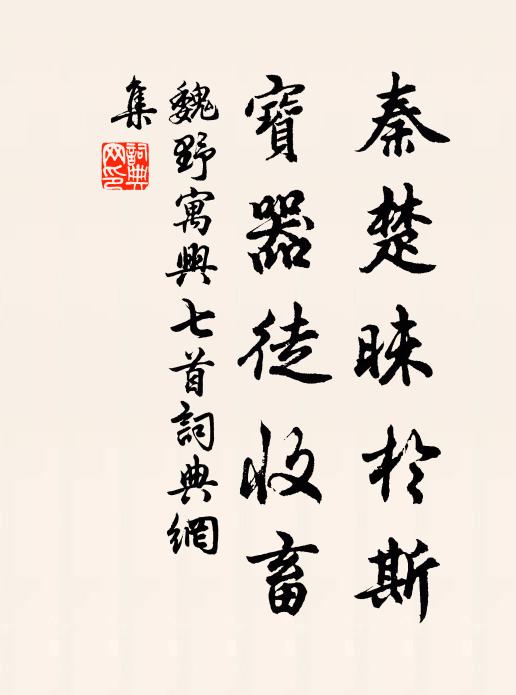 秦楚昧於斯
寶器徒收畜
魏野寓興七首詞典網
集
詞典
网印